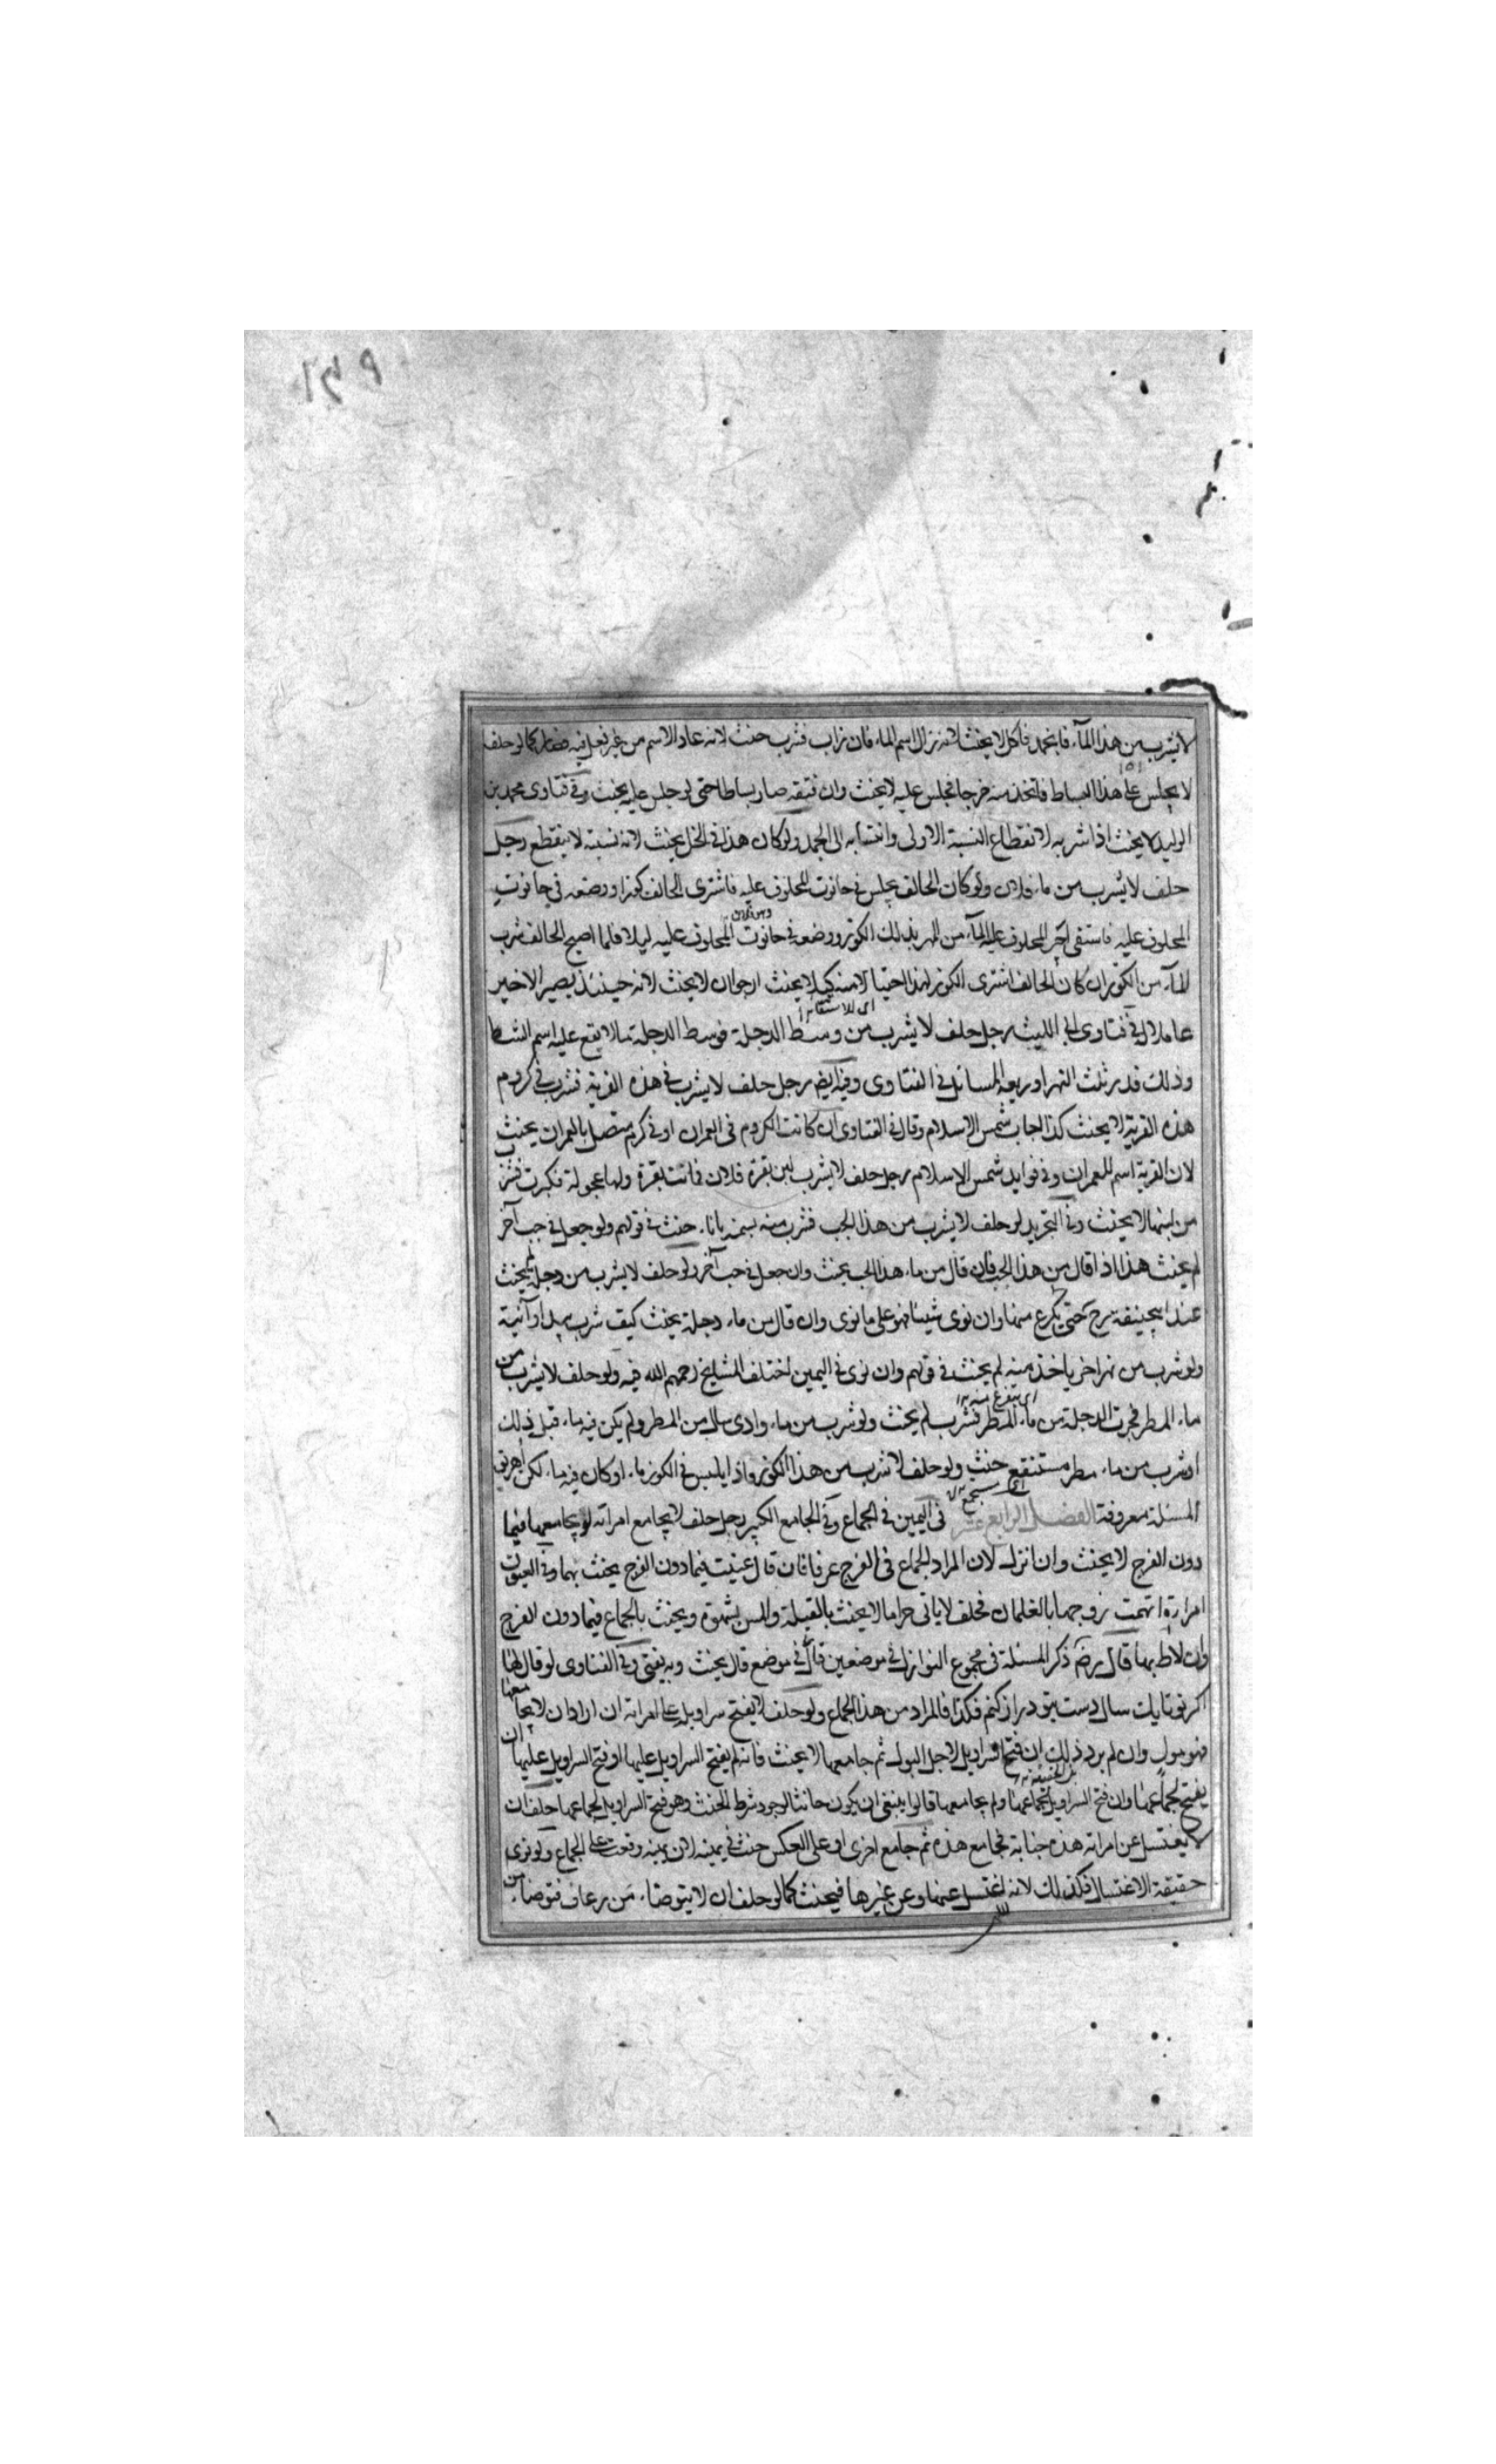 لا يشرب من هذا الماء فانجمد فاكل لا يحنث لانه زال اسم الماء فان ذاب فشرب حنث لانه عاد الاسم من غير فعل فيه فصار كما لو حلف
لا يجلس على هذا البساط فاتخذ منه خرجا فجلس عليه لا يحنث وان فتقه صار بساطا حتى لو جلس عليه يحنث وفي فتاوى محمد بن
الوليد لا يحنث اذا شربه لانقطاع النسبة الاولى وانتسابه الى الجمد ولو كان هذا في الخل يحنث لانه نسبته لا ينقطع رجل
حلف لا يشرب من ماء فلان ولو كان الحالف يجلس في حانوت المحلوف عليه فاشترى الحالف كوزا ووضعه في حانوت
المحلوف عليه فاستقى اجير المحلوف عليه الماء من النهر بذلك الكوز ووضعه في حانوت المحلوف عليه ليلا فلما اصبح الحالف شرب
الماء من الكوز ان كان الحالف اشترى الكوز لهذا احتيالا منه كيلا يحنث ارجو ان لا يحنث لانه حينئذ يصير الاجير
اى للاستقاء
عاملا له في فتاوى ابي الليث رجل حلف لا يشرب من وسط الدجلة فوسط الدجلة ما لا يقع عليه اسم الشط
وذلك قدر ثلث النهر او ربعه المسائل في الفتاوى وفيه ايضا رجل حلف لا يشرب في هذه القرية فشرب في كروم
هذه القرية لا يحنث كذا اجاب شمس الاسلام وقال في الفتاوى ان كانت الكروم في العمران او في كرم متصل بالعمران يحنث
لان القرية اسم للعمران وفي فوايد شمس الاسلام رجل حلف لا يشرب لبن بقرة فلان فماتت بقرة ولها عجولة فكبرت فشرب
من لبنها لا يحنث وفي التجريد لو حلف لا يشرب من هذا الجب فشرب منه باناء حنث في قولهم ولو جعل في جب آخر
لم يحنث هذا اذا قال من هذا الجب فان قال من ماء هذا الجب يحنث وان جعل في جب آخر ولو حلف لا يشرب من دجلة لم يحنث
عند ابيحنيفة رح حتى يكرع منها وان نوى شيئا فهو على ما نوى وان قال من ماء دجلة يحنث كيف شرب بيد او آنية
ولو شرب من نهر اخر ياخذ منه لم يحنث في قولهم وان نوى في اليمين اختلف المشايخ رحمهم الله فيه ولو حلف لا يشرب من
ماء المطر فجرت الدجلة من ماء المطر فشرب لم يحنث ولو شرب من ماء وادى سال من المطر ولم يكن فيه ماء قبل ذلك
او شرب من ماء مطر مستنقع حنث ولو حلف لا شرب من هذا الكوز واذا ليس في الكوز ماء او كان فيه ماء لكن اهريق
المسئلة معروفة الفصل الرابع عشر في اليمين في الجماع وفي الجامع الكبير رجل حلف لا يجامع امراته لو يجامعها فيما
دون الفرج لا يحنث وان انزل لان المراد الجماع في الفرج عرفا فان قال عنيت فيما دون الفرج يحنث بهما وفي العيون
امراة اتهمت زوجها بالغلمان فحلف لا ياتى حراما لا يحنث بالقبلة والمس بشهوة ويحنث بالجماع فيما دون الفرج
وان لاط بها قال رضه ذكر المسئلة في مجموع النوازل في موضعين قال في موضع قال يحنث وبه يفتى وفي الفتاوى لو قال لها
اكر تو تا يك سال دست بتو دراز كنم فكذا فالمراد من هذا الجماع ولو حلف لا يفتح سراويله على امراته ان اراد ان لا يجامعها
فهو مول وان لم يرد ذلك ان فتح السراويل لاجل البول ثم جامعها لا يحنث فانه لم يفتح السراويل عليها او فتح السراويل عليها ان
يفتح لجماعها وان فتح السراويل لجماعها ولم يجامعها قالوا ينبغى ان يكون حانثا لوجود شرط الحنث وهو فتح السراويل لجماعها حلف ان
لا يغتسل عن امراته هذه جنابة فجامع هذه ثم جامع اخرى او على العكس حنث في يمينه لان يمينه وقعت على الجماع ولو نوى
حقيقة الاغتسال فكذلك لانه اغتسل عنها وعن غيرها فيحنث كما لو حلف ان لا يتوضاء من رعاف فتوضاء من